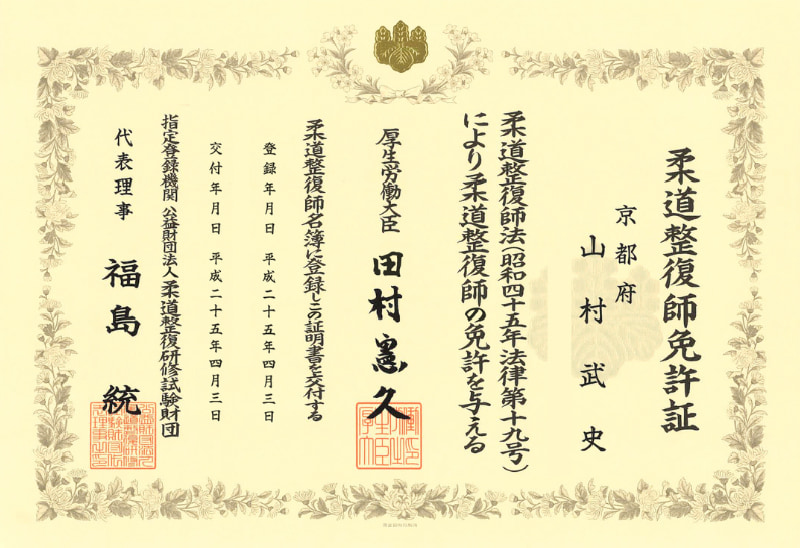 柔道整復師免許証
京都府
山村武史
柔道整復師法(昭和四十五年法律第十九号)
により柔道整復師の免許を与える
厚生労働大臣 田村憲久
柔道整復師名簿に登録しこの証明書を交付する
登録年月日 平成二十五年四月三日
交付年月日 平成二十五年四月三日
指定登録機関 公益財団法人柔道整復研修試験財団
代表理事 福島統